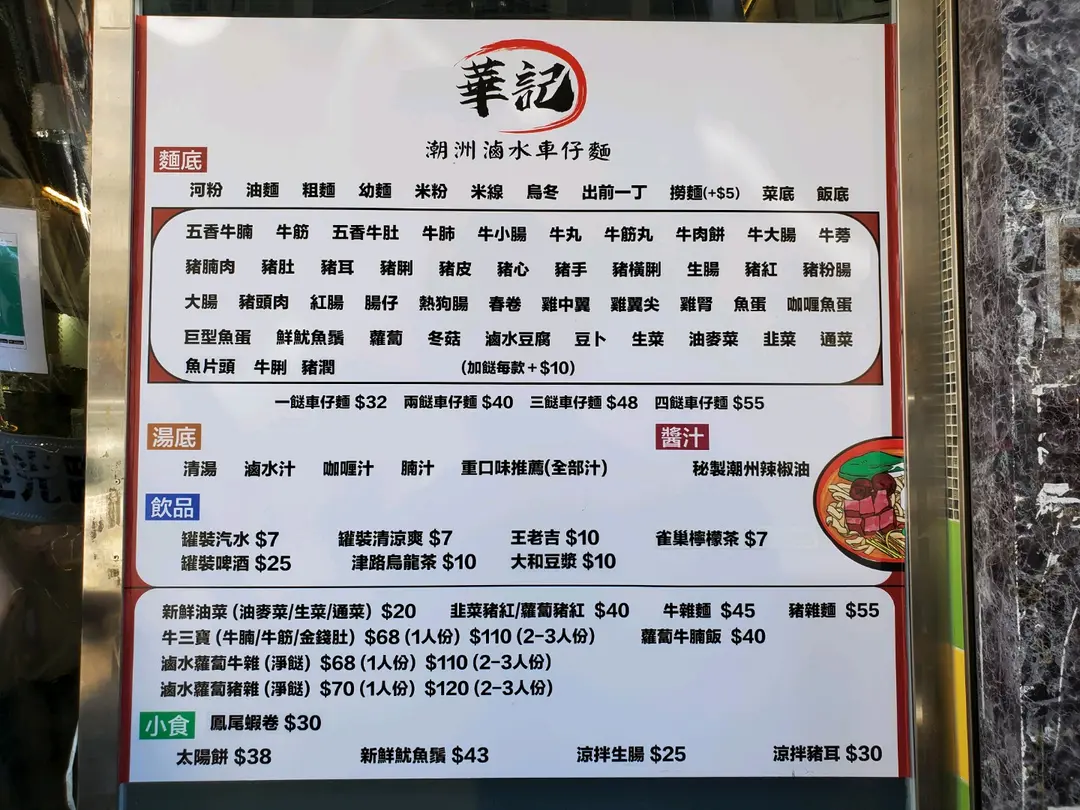 華記
潮洲滷水車仔麵
麵底
河粉 油麵 粗麵 幼麵 米粉 米線 烏冬 出前一丁 撈麵(+$5) 菜底 飯底
五香牛腩 牛筋 五香牛肚 牛肺 牛小腸 牛丸 牛筋丸 牛肉餅 牛大腸 牛蒡
豬腩肉 豬肚 豬耳 豬脷 豬皮 豬心 豬手 豬橫脷 生腸 豬紅 豬粉腸
大腸 豬頭肉 紅腸 腸仔 熱狗腸 春卷 雞中翼 雞翼尖 雞腎 魚蛋 咖喱魚蛋
巨型魚蛋 鮮魷魚鬚 蘿蔔 冬菇 滷水豆腐 豆卜 生菜 油麥菜 韭菜 通菜
魚片頭 牛脷 豬潤 (加餸每款+$10)
一餸車仔麵 $32 兩餸車仔麵 $40 三餸車仔麵 $48 四餸車仔麵 $55
湯底 醬汁
清湯 滷水汁 咖喱汁 腩汁 重口味推薦(全部汁) 秘製潮州辣椒油
飲品
罐裝汽水 $7 罐裝清涼爽 $7 王老吉 $10 雀巢檸檬茶 $7
罐裝啤酒 $25 津路烏龍茶 $10 大和豆漿 $10
新鮮油菜 (油麥菜/生菜/通菜) $20 韭菜豬紅/蘿蔔豬紅 $40 牛雜麵 $45 豬雜麵 $55
牛三寶 (牛腩/牛筋/金錢肚) $68 (1人份) $110 (2-3人份) 蘿蔔牛腩飯 $40
滷水蘿蔔牛雜 (淨餸) $68 (1人份) $110 (2-3人份)
滷水蘿蔔豬雜 (淨餸) $70 (1人份) $120 (2-3人份)
小食 鳳尾蝦卷 $30
太陽餅 $38 新鮮魷魚鬚 $43 涼拌生腸 $25 涼拌豬耳 $30